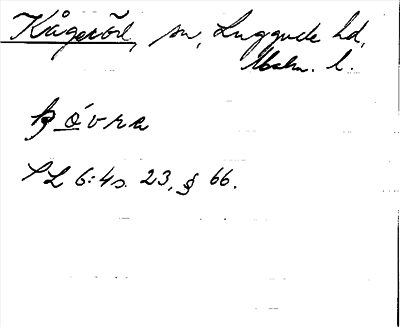 Kågeröd, sn, Luggude hd,
Malm. l.
på övra
SL 6:4 s. 23, § 66.